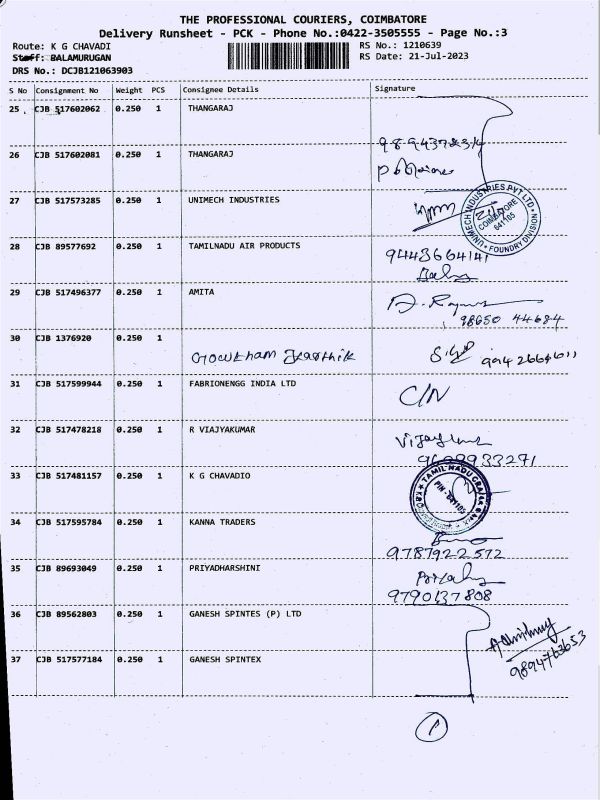 THE PROFESSIONAL COURIERS, COIMBATORE
Delivery Runsheet - PCK - Phone No.:0422-3505555 - Page No.:3
Route: K G CHAVADI RS No.: 1210639
Staff: BALAMURUGAN RS Date: 21-Jul-2023
DRS No.: DCJB121063903
S No Consignment No Weight PCS Consignee Details Signature
25 CJB 517602062 0.250 1 THANGARAJ
9894372314
26 CJB 517602081 0.250 1 THANGARAJ
27 CJB 517573285 0.250 1 UNIMECH INDUSTRIES
UNIMECH INDUSTRIES PVT LTD * FOUNDRY DIVISION *
COIMBATORE
641105
28 CJB 89577692 0.250 1 TAMILNADU AIR PRODUCTS
9443664141
29 CJB 517496377 0.250 1 AMITA
98650 44684
30 CJB 1376920 0.250 1
Gowtham Karthik
31 CJB 517599944 0.250 1 FABRIONENGG INDIA LTD C/N
32 CJB 517478218 0.250 1 R VIAJYAKUMAR
33 CJB 517481157 0.250 1 K G CHAVADIO
TAMIL NADU
PIN - 641105
34 CJB 517595784 0.250 1 KANNA TRADERS
9787922572
35 CJB 89693049 0.250 1 PRIYADHARSHINI
9790137808
36 CJB 89562803 0.250 1 GANESH SPINTES (P) LTD
37 CJB 517577184 0.250 1 GANESH SPINTEX
9894763653
1